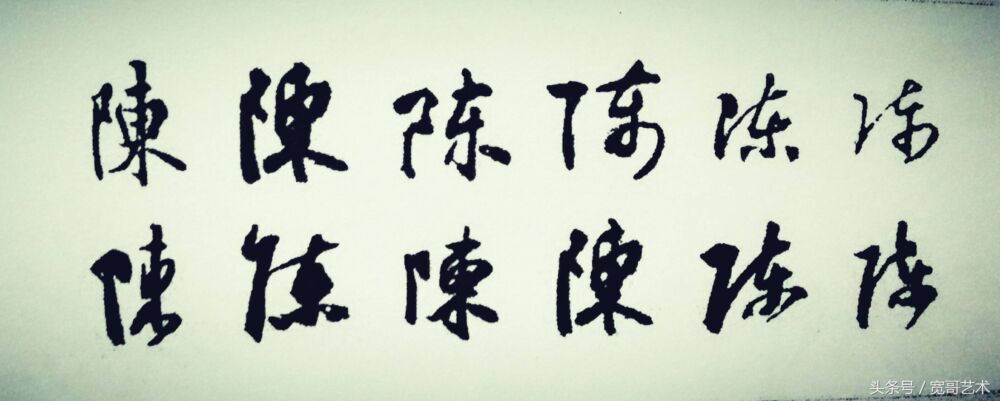 陳 陳 陈 陈 陈 陈
陳 陈 陳 陳 陈 陈
头条号 / 宽哥艺术